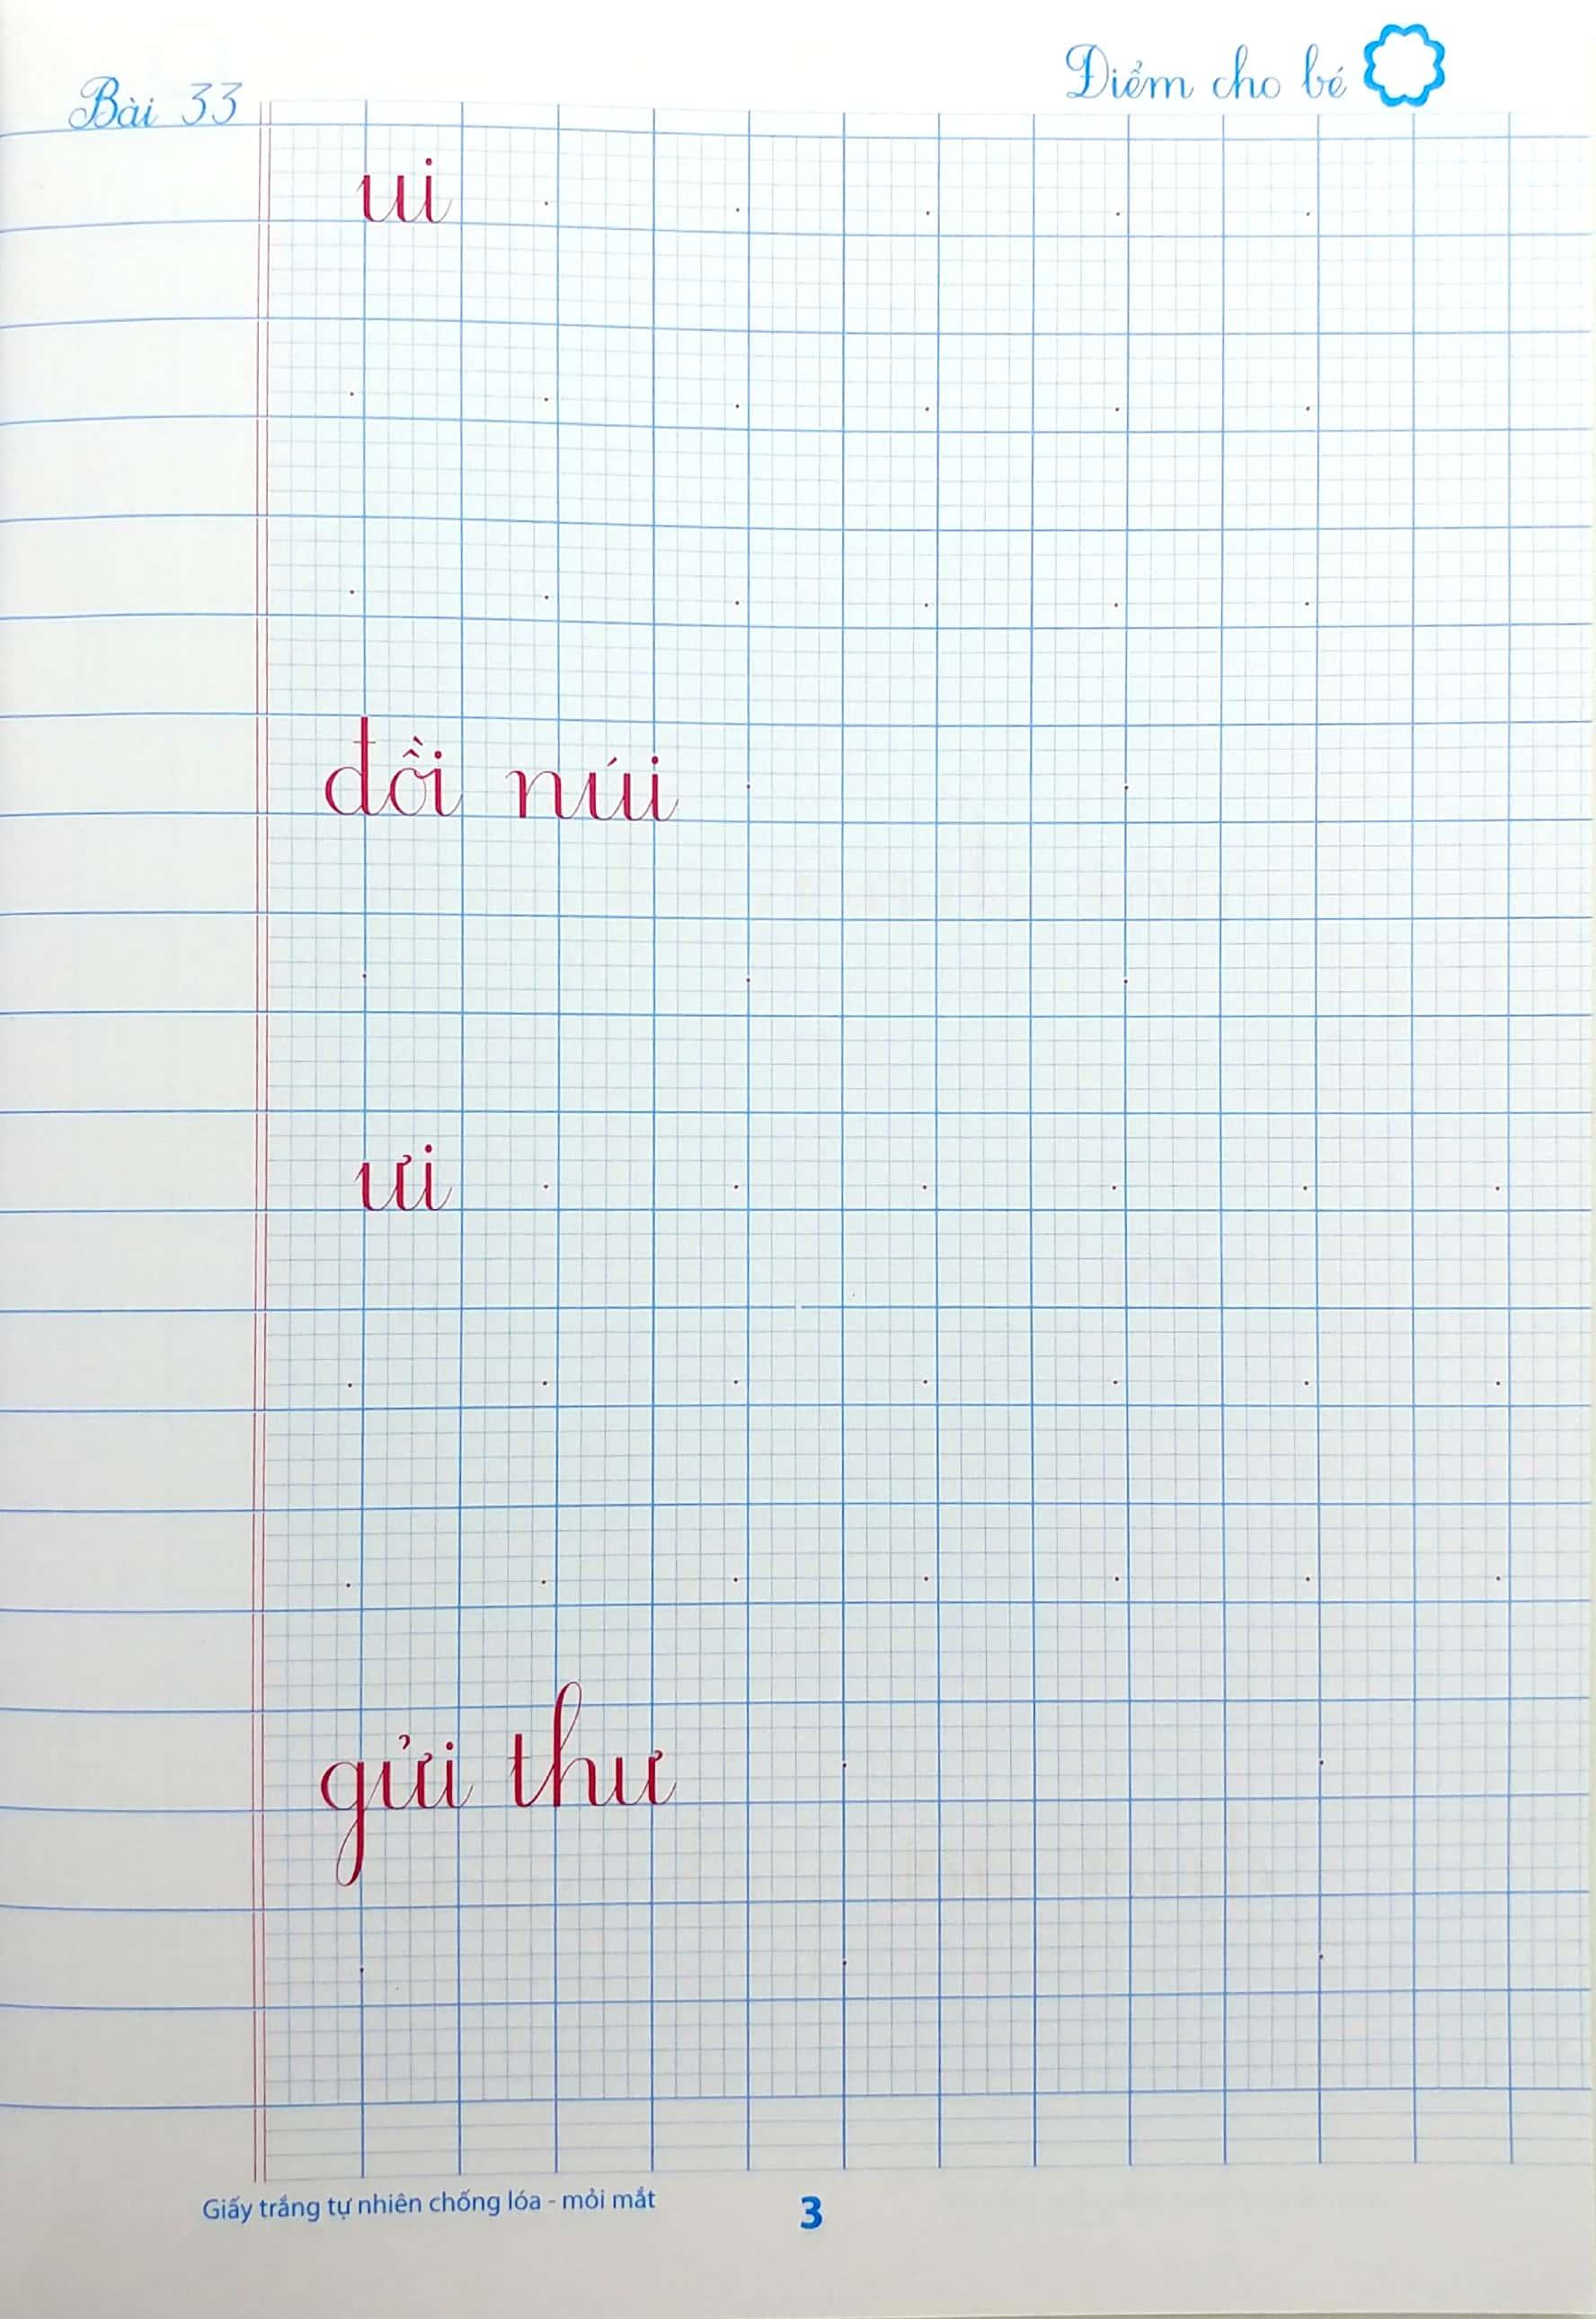 Điểm cho bé
Bài 33
ui
đồi núi
ưi
gửi thư
Giấy trắng tự nhiên chống lóa - mỏi mắt
3